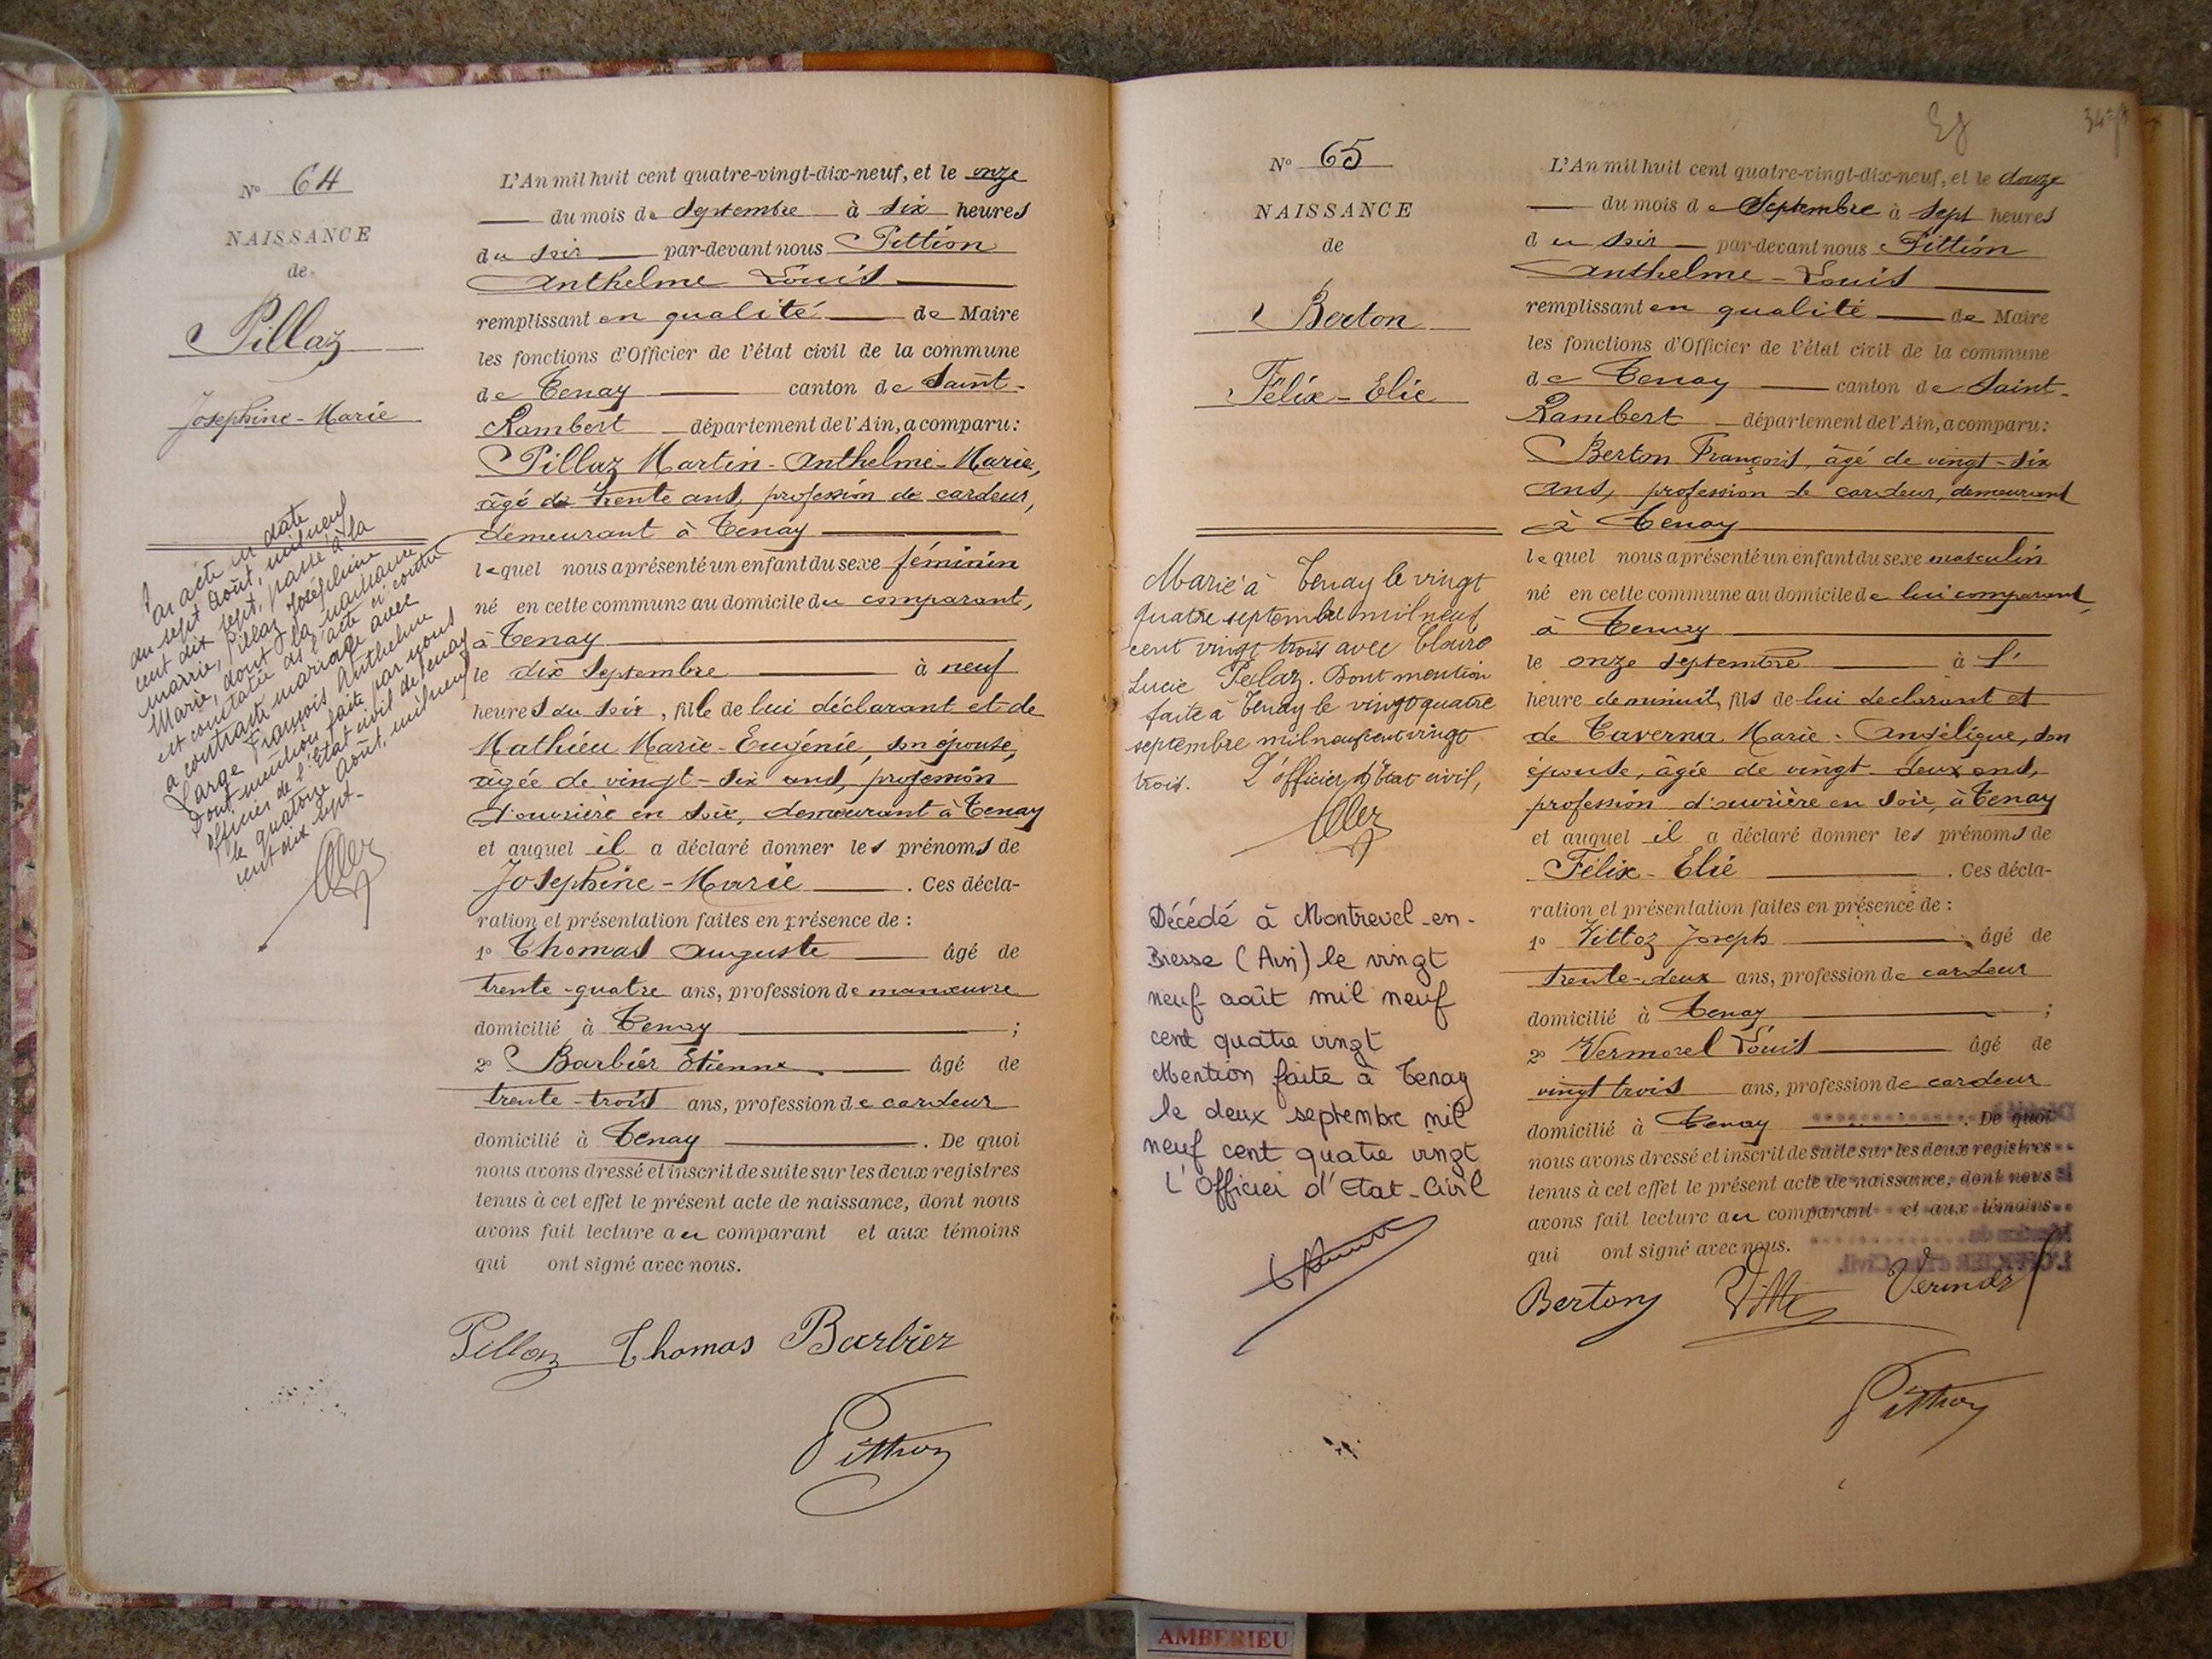 N° 64
NAISSANCE
de
Pillaz
Josephine-Marie
Par acte en date
du sept août, mil neuf
cent dix sept, passé à la
mairie, Pillaz Joséphine
Marie, dont la naissance
est constatée dans l'acte ci-contre
a contracté mariage avec
Large François Anthelme
Dont mention faite par nous
officier de l'Etat civil de Tenay
le quatorze Août, mil neuf
cent dix sept.
L'An mil huit cent quatre-vingt-dix-neuf, et le onze
du mois de Septembre à six heures
du soir par-devant nous Pittion
Anthelme Louis
remplissant en qualité de Maire
les fonctions d'Officier de l'état civil de la commune
de Tenay canton de Saint-
Rambert département de l'Ain, a comparu:
Pillaz Martin-Anthelme-Marie,
âgé de trente ans, profession de cardeur,
demeurant à Tenay
lequel nous a présenté un enfant du sexe féminin
né en cette commune au domicile du comparant,
à Tenay
le dix Septembre à neuf
heures du soir, fille de lui déclarant et de
Mathieu Marie-Eugénie, son épouse,
âgée de vingt-six ans, profession
d'ouvrière en soie, demeurant à Tenay
et auquel il a déclaré donner les prénoms de
Josephine-Marie . Ces décla-
ration et présentation faites en présence de :
1° Thomas Auguste âgé de
trente-quatre ans, profession de manœuvre
domicilié à Tenay ;
2° Barbier Etienne âgé de
trente-trois ans, profession de cardeur
domicilié à Tenay . De quoi
nous avons dressé et inscrit de suite sur les deux registres
tenus à cet effet le présent acte de naissance, dont nous
avons fait lecture au comparant et aux témoins
qui ont signé avec nous.
Pillaz Thomas Barbier
Pittion
N° 65
NAISSANCE
de
Berton
Félix-Elie
Marié à Tenay le vingt
quatre septembre mil neuf
cent vingt trois avec Claire
Lucie Pellaz. Dont mention
faite à Tenay le vingt quatre
septembre mil neuf cent vingt
trois. L'officier d'état civil,
Décédé à Montrevel-en-
Bresse (Ain) le vingt
neuf août mil neuf
cent quatre vingt
Mention faite à Tenay
le deux septembre mil
neuf cent quatre vingt
L'Officier d'Etat-Civil
L'An mil huit cent quatre-vingt-dix-neuf, et le douze
du mois de Septembre à sept heures
du soir par-devant nous Pittion
Anthelme-Louis
remplissant en qualité de Maire
les fonctions d'Officier de l'état civil de la commune
de Tenay canton de Saint-
Rambert département de l'Ain, a comparu:
Berton François, âgé de vingt-six
ans, profession de cardeur, demeurant
à Tenay
lequel nous a présenté un enfant du sexe masculin
né en cette commune au domicile de lui comparant,
à Tenay
le onze septembre à l'
heure de minuit, fils de lui declarant et
de Taverna Marie-Angélique, son
épouse, âgée de vingt-deux ans,
profession d'ouvrière en soie, à Tenay
et auquel il a déclaré donner les prénoms de
Félix-Elie . Ces décla-
ration et présentation faites en présence de :
1° Vittoz Joseph âgé de
trente-deux ans, profession de cardeur
domicilié à Tenay ;
2° Vermorel Louis âgé de
vingt trois ans, profession de cardeur
domicilié à Tenay . De quoi
nous avons dressé et inscrit de suite sur les deux registres
tenus à cet effet le présent acte de naissance, dont nous
avons fait lecture au comparant et aux témoins
qui ont signé avec nous.
Berton
Pittion
AMBERIEU